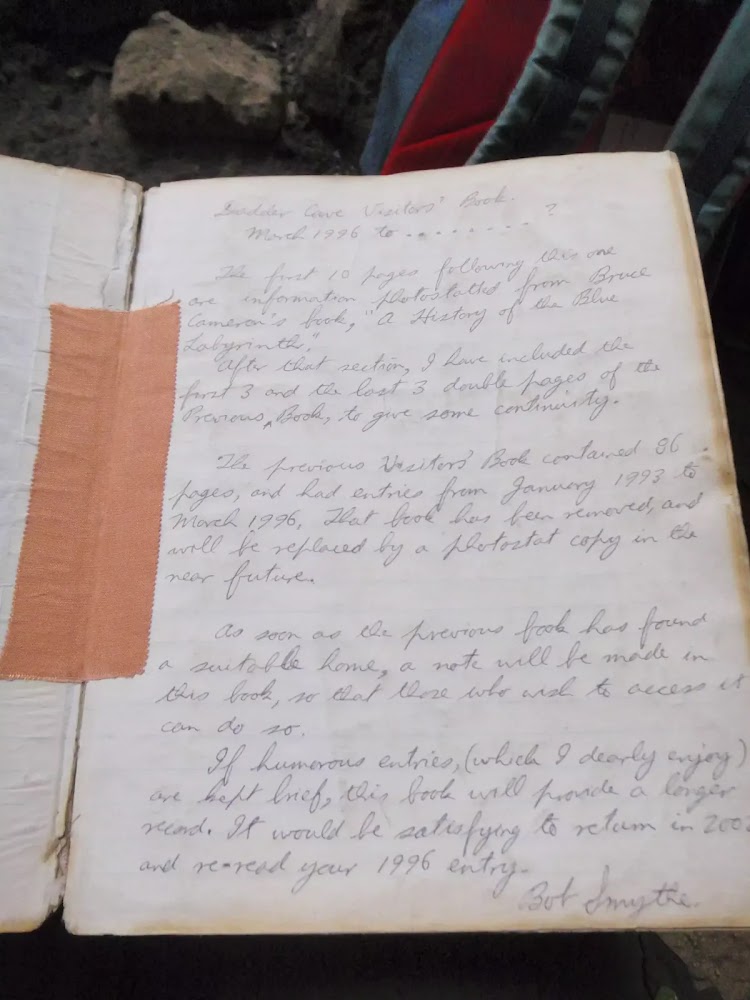 Dadder Cave Visitors' Book.
March 1996 to ........ ?
The first 10 pages following this one
are information photostatted from Bruce
Cameron's book, "A History of the Blue
Labyrinth."
After that section, I have included the
first 3 and the last 3 double pages of the
Previous Book, to give some continuity.
The previous Visitors' Book contained 86
pages, and had entries from January 1993 to
March 1996. That book has been removed, and
will be replaced by a photostat copy in the
near future.
As soon as the previous book has found
a suitable home, a note will be made in
this book, so that those who wish to access it
can do so.
If humorous entries, (which I dearly enjoy)
are kept brief, this book will provide a longer
record. It would be satisfying to return in 2002
and re-read your 1996 entry.
Bob Smythe.